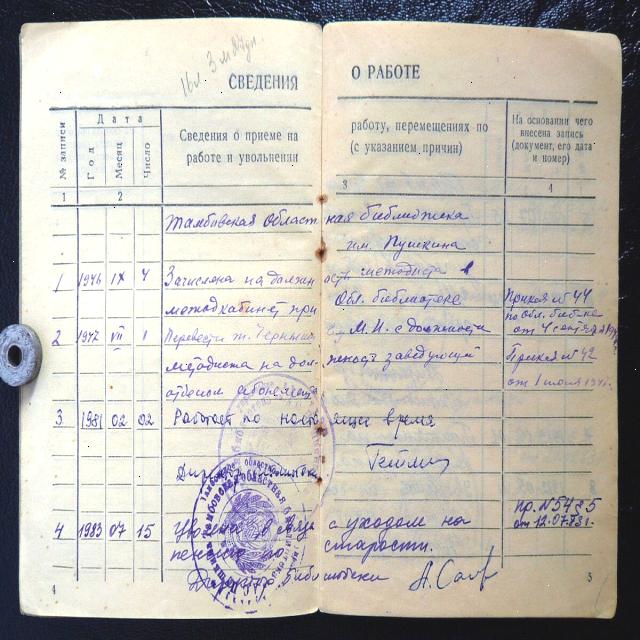 3 м
СВЕДЕНИЯ О РАБОТЕ
№ записи
Дата
Год
Месяц
Число
Сведения о приеме на работу, перемещениях по
работе и увольнении (с указанием причин)
На основании чего
внесена запись
(документ, его дата
и номер)
1 2 3 4
Тамбовская Областная библиотека
им. Пушкина
1 1946 IX 4 Зачислена на должность методиста в
методкабинет при Обл. библиотеке
Приказ № 44
по обл. библ-ке
от 4 сентября
2 1947 VII 1 Перевести т. М. И. с должности
методиста на должность заведующей
отделом абонемента
Приказ № 42
от 1 июля 194
3 1981 02 02 Работает по настоящее время
Директор библиотеки
4 1983 07 15 Уволена в связи с уходом на
пенсию по старости.
пр. №
от 12.07.83 г.
Директор библиотеки
4 5